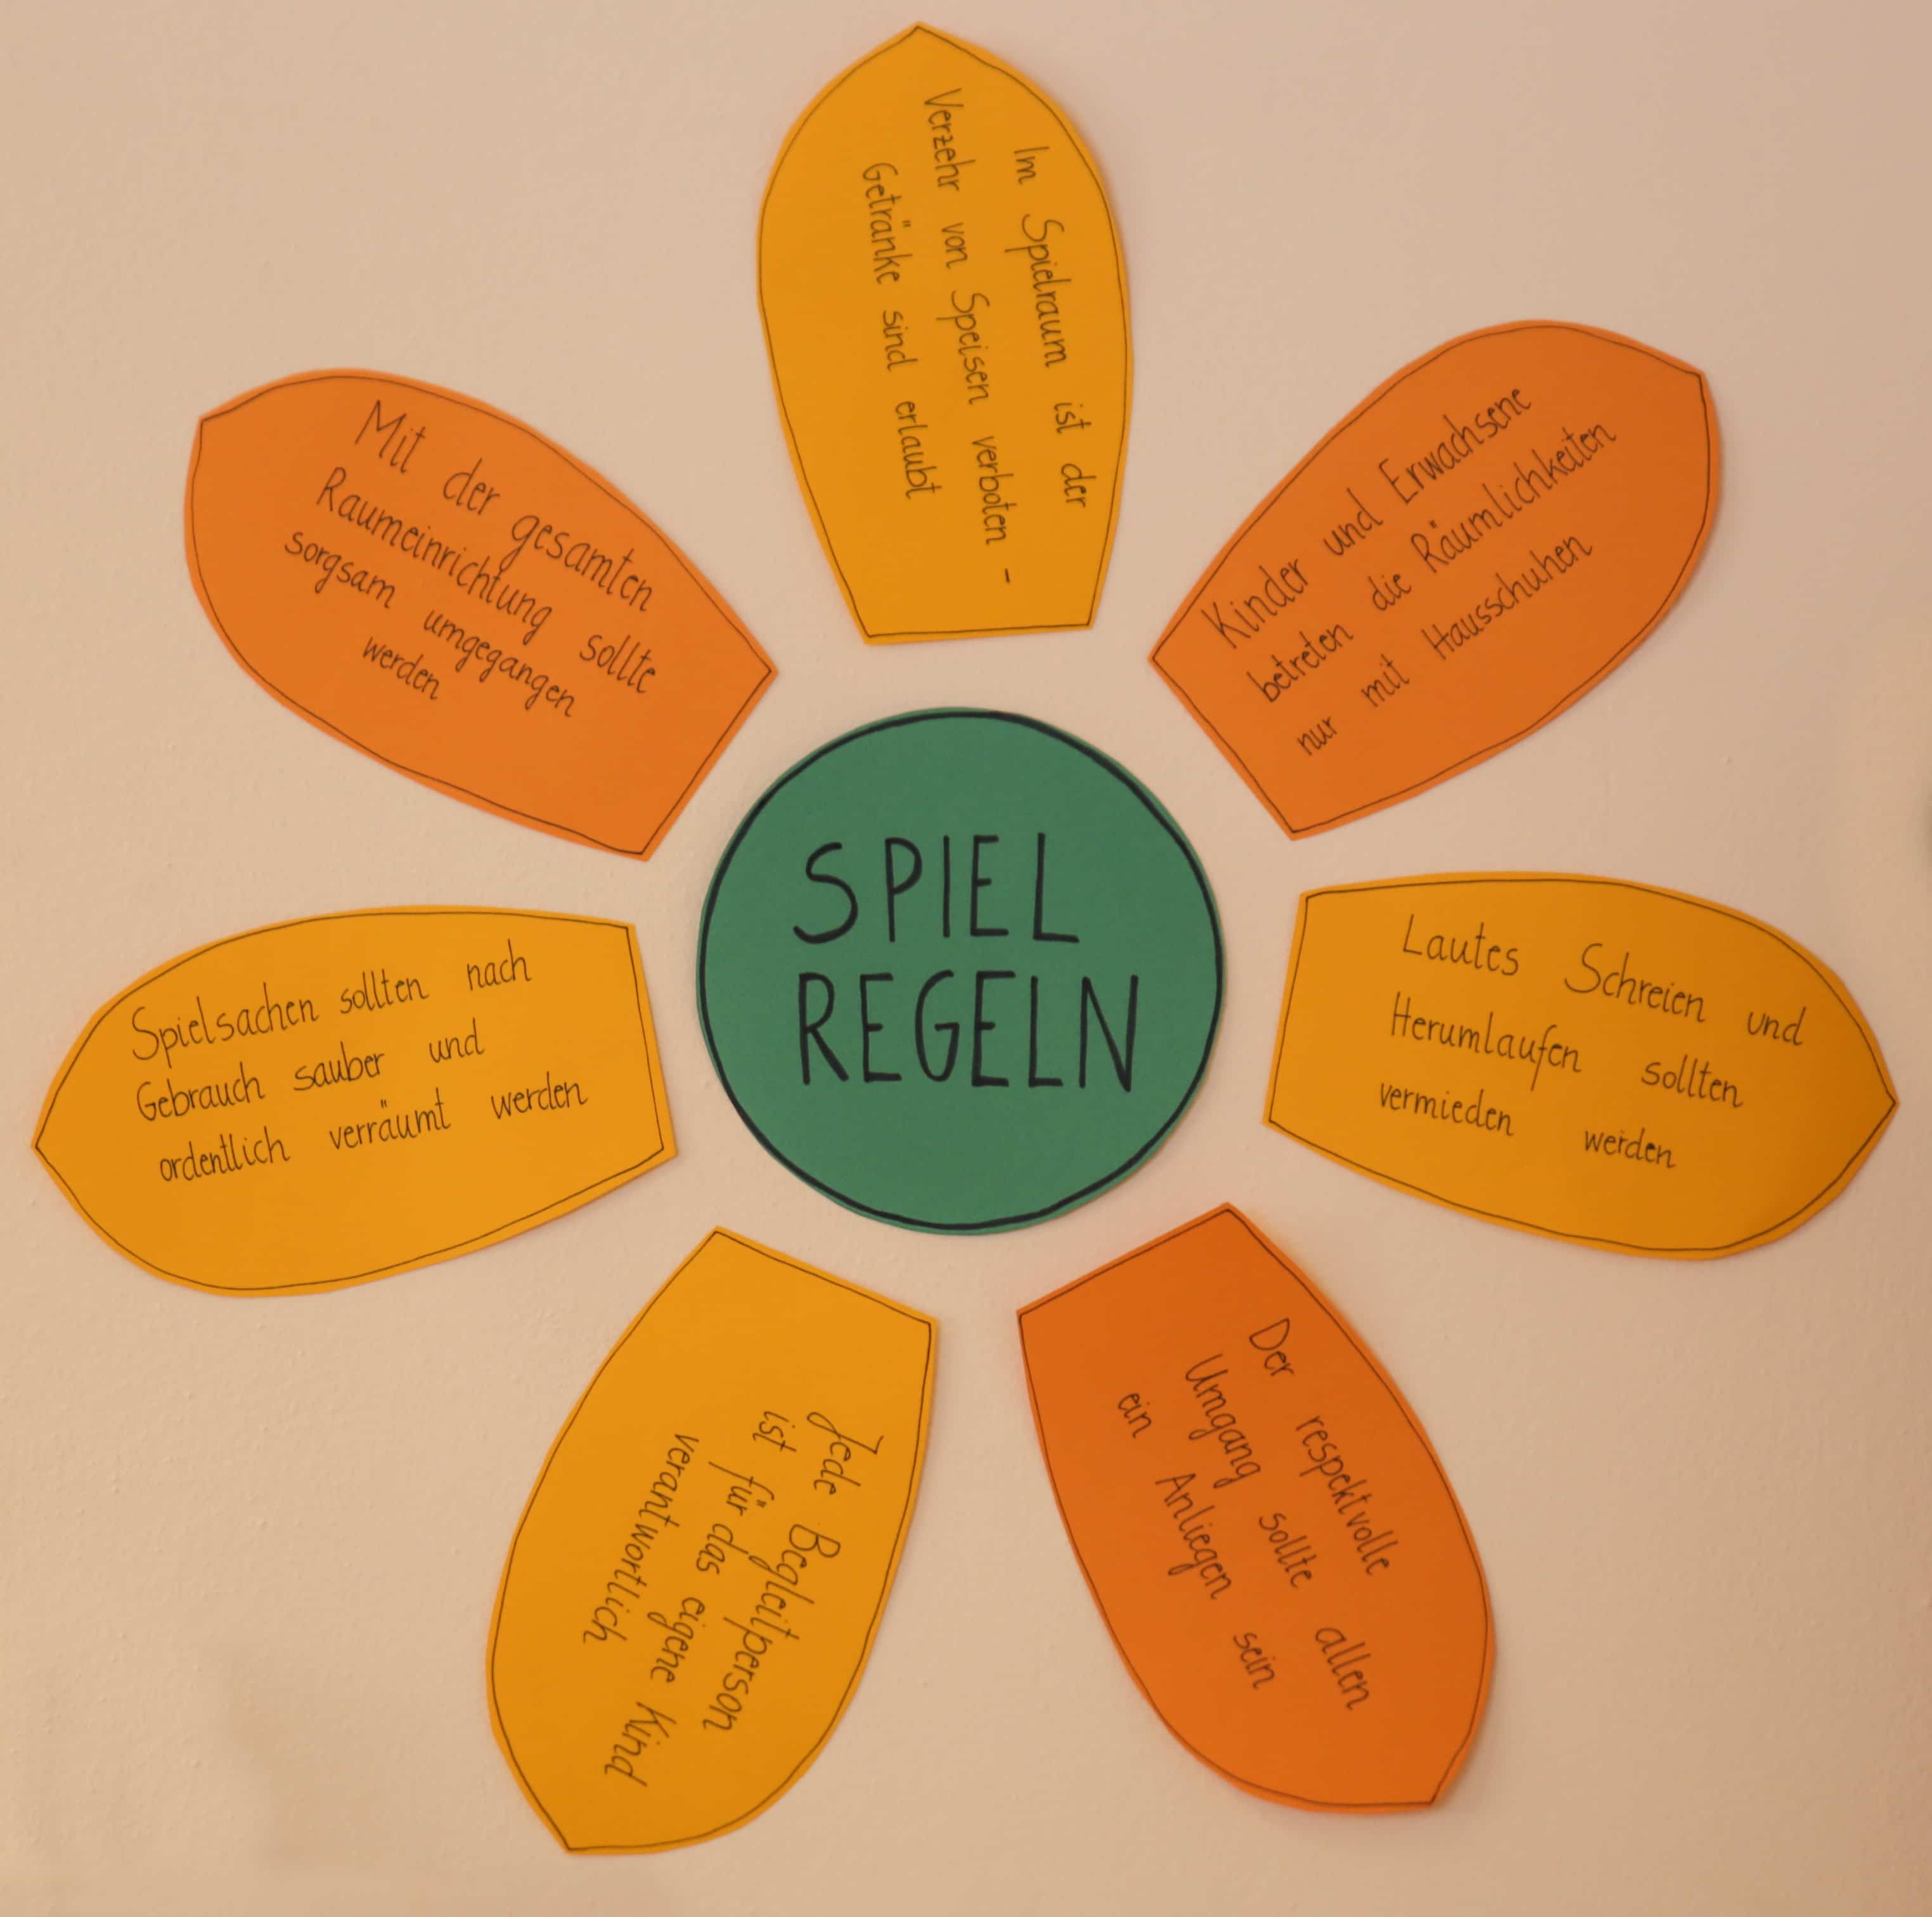 SPIEL
REGELN
Im Spielraum ist der
Verzehr von Speisen verboten -
Getränke sind erlaubt
Kinder und Erwachsene
betreten die Räumlichkeiten
nur mit Hausschuhen
Lautes Schreien und
Herumlaufen sollten
vermieden werden
Der respektvolle
Umgang sollte allen
ein Anliegen sein
Jede Begleitperson
ist für das eigene Kind
verantwortlich
Spielsachen sollten nach
Gebrauch sauber und
ordentlich verräumt werden
Mit der gesamten
Raumeinrichtung sollte
sorgsam umgegangen
werden